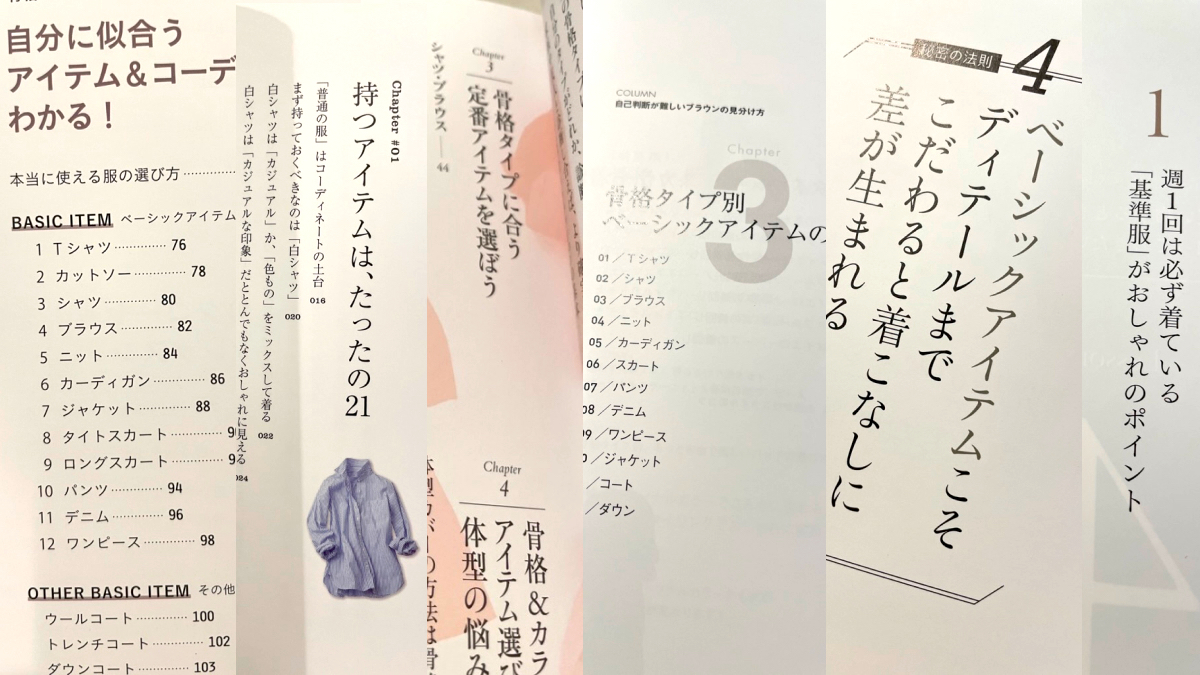 自分に似合う
アイテム＆コーデ
わかる！
本当に使える服の選び方
BASIC ITEM ベーシックアイテム
1 Tシャツ 76
2 カットソー 78
3 シャツ 80
4 ブラウス 82
5 ニット 84
6 カーディガン 86
7 ジャケット 88
8 タイトスカート
9 ロングスカート
10 パンツ 94
11 デニム 96
12 ワンピース 98
OTHER BASIC ITEM その他
ウールコート 100
トレンチコート 102
ダウンコート 103
Chapter #01
持つアイテムは、たったの21
「普通の服」はコーディネートの土台 016
まず持っておくべきなのは「白シャツ」 020
白シャツは「カジュアル」か、「色もの」をミックスして着る 022
白シャツは「カジュアルな印象」だととんでもなくおしゃれに見える 024
Chapter
3
骨格タイプに合う
定番アイテムを選ぼう
シャツ・ブラウス 44
Chapter
4
骨格＆カラ
アイテム選び
体型の悩み
COLUMN
自己判断が難しいブラウンの見分け方
Chapter
3
骨格タイプ別
ベーシックアイテムの
01／Tシャツ
02／シャツ
03／ブラウス
04／ニット
05／カーディガン
06／スカート
07／パンツ
08／デニム
09／ワンピース
／ジャケット
／コート
／ダウン
秘密の法則 4
ベーシックアイテムこそ
ディテールまで
こだわると着こなしに
差が生まれる
1
週1回は必ず着ている
「基準服」がおしゃれのポイント